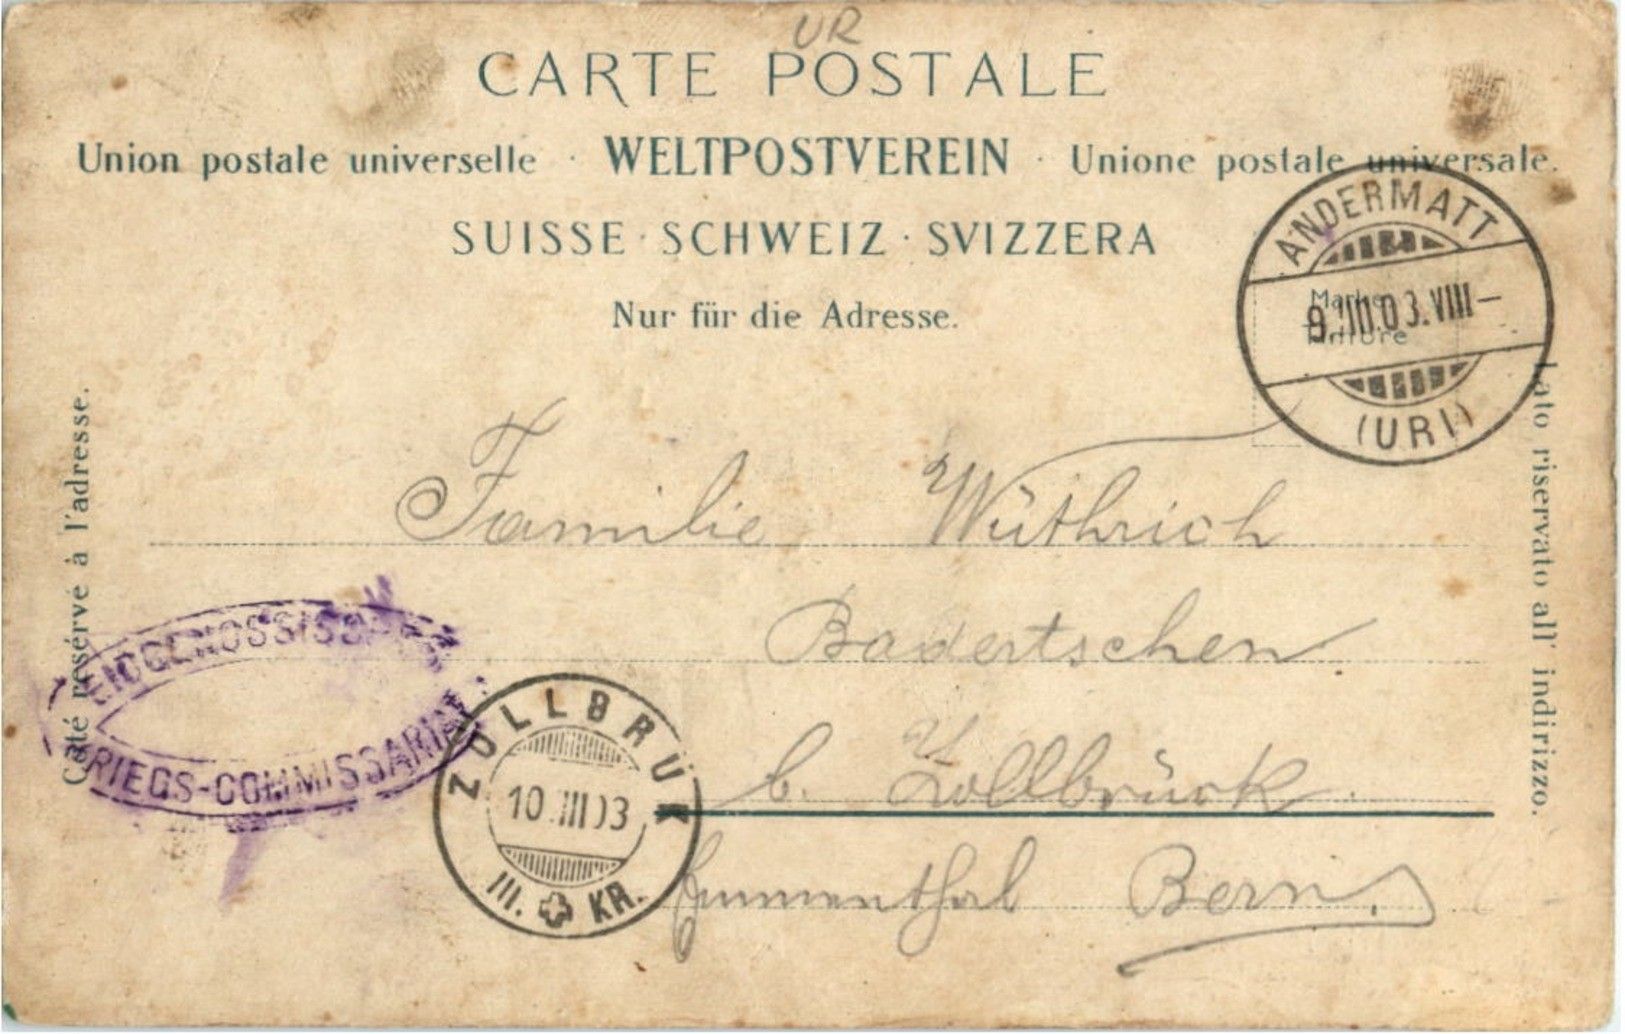 UR
CARTE POSTALE
Union postale universelle · WELTPOSTVEREIN · Unione postale universale.
SUISSE · SCHWEIZ · SVIZZERA
Nur für die Adresse.
ANDERMATT
9.III.03.VIII–
(URI)
Marke
Timbre
Côté réservé à l'adresse.
Lato riservato all' indirizzo.
Familie Wüthrich
Badertschen
b. Zollbrück.
Emmenthal Bern.
EIDGENÖSSISCHES
KRIEGS-COMMISSARIAT
ZOLLBRÜK
10.III 03
III. KR.